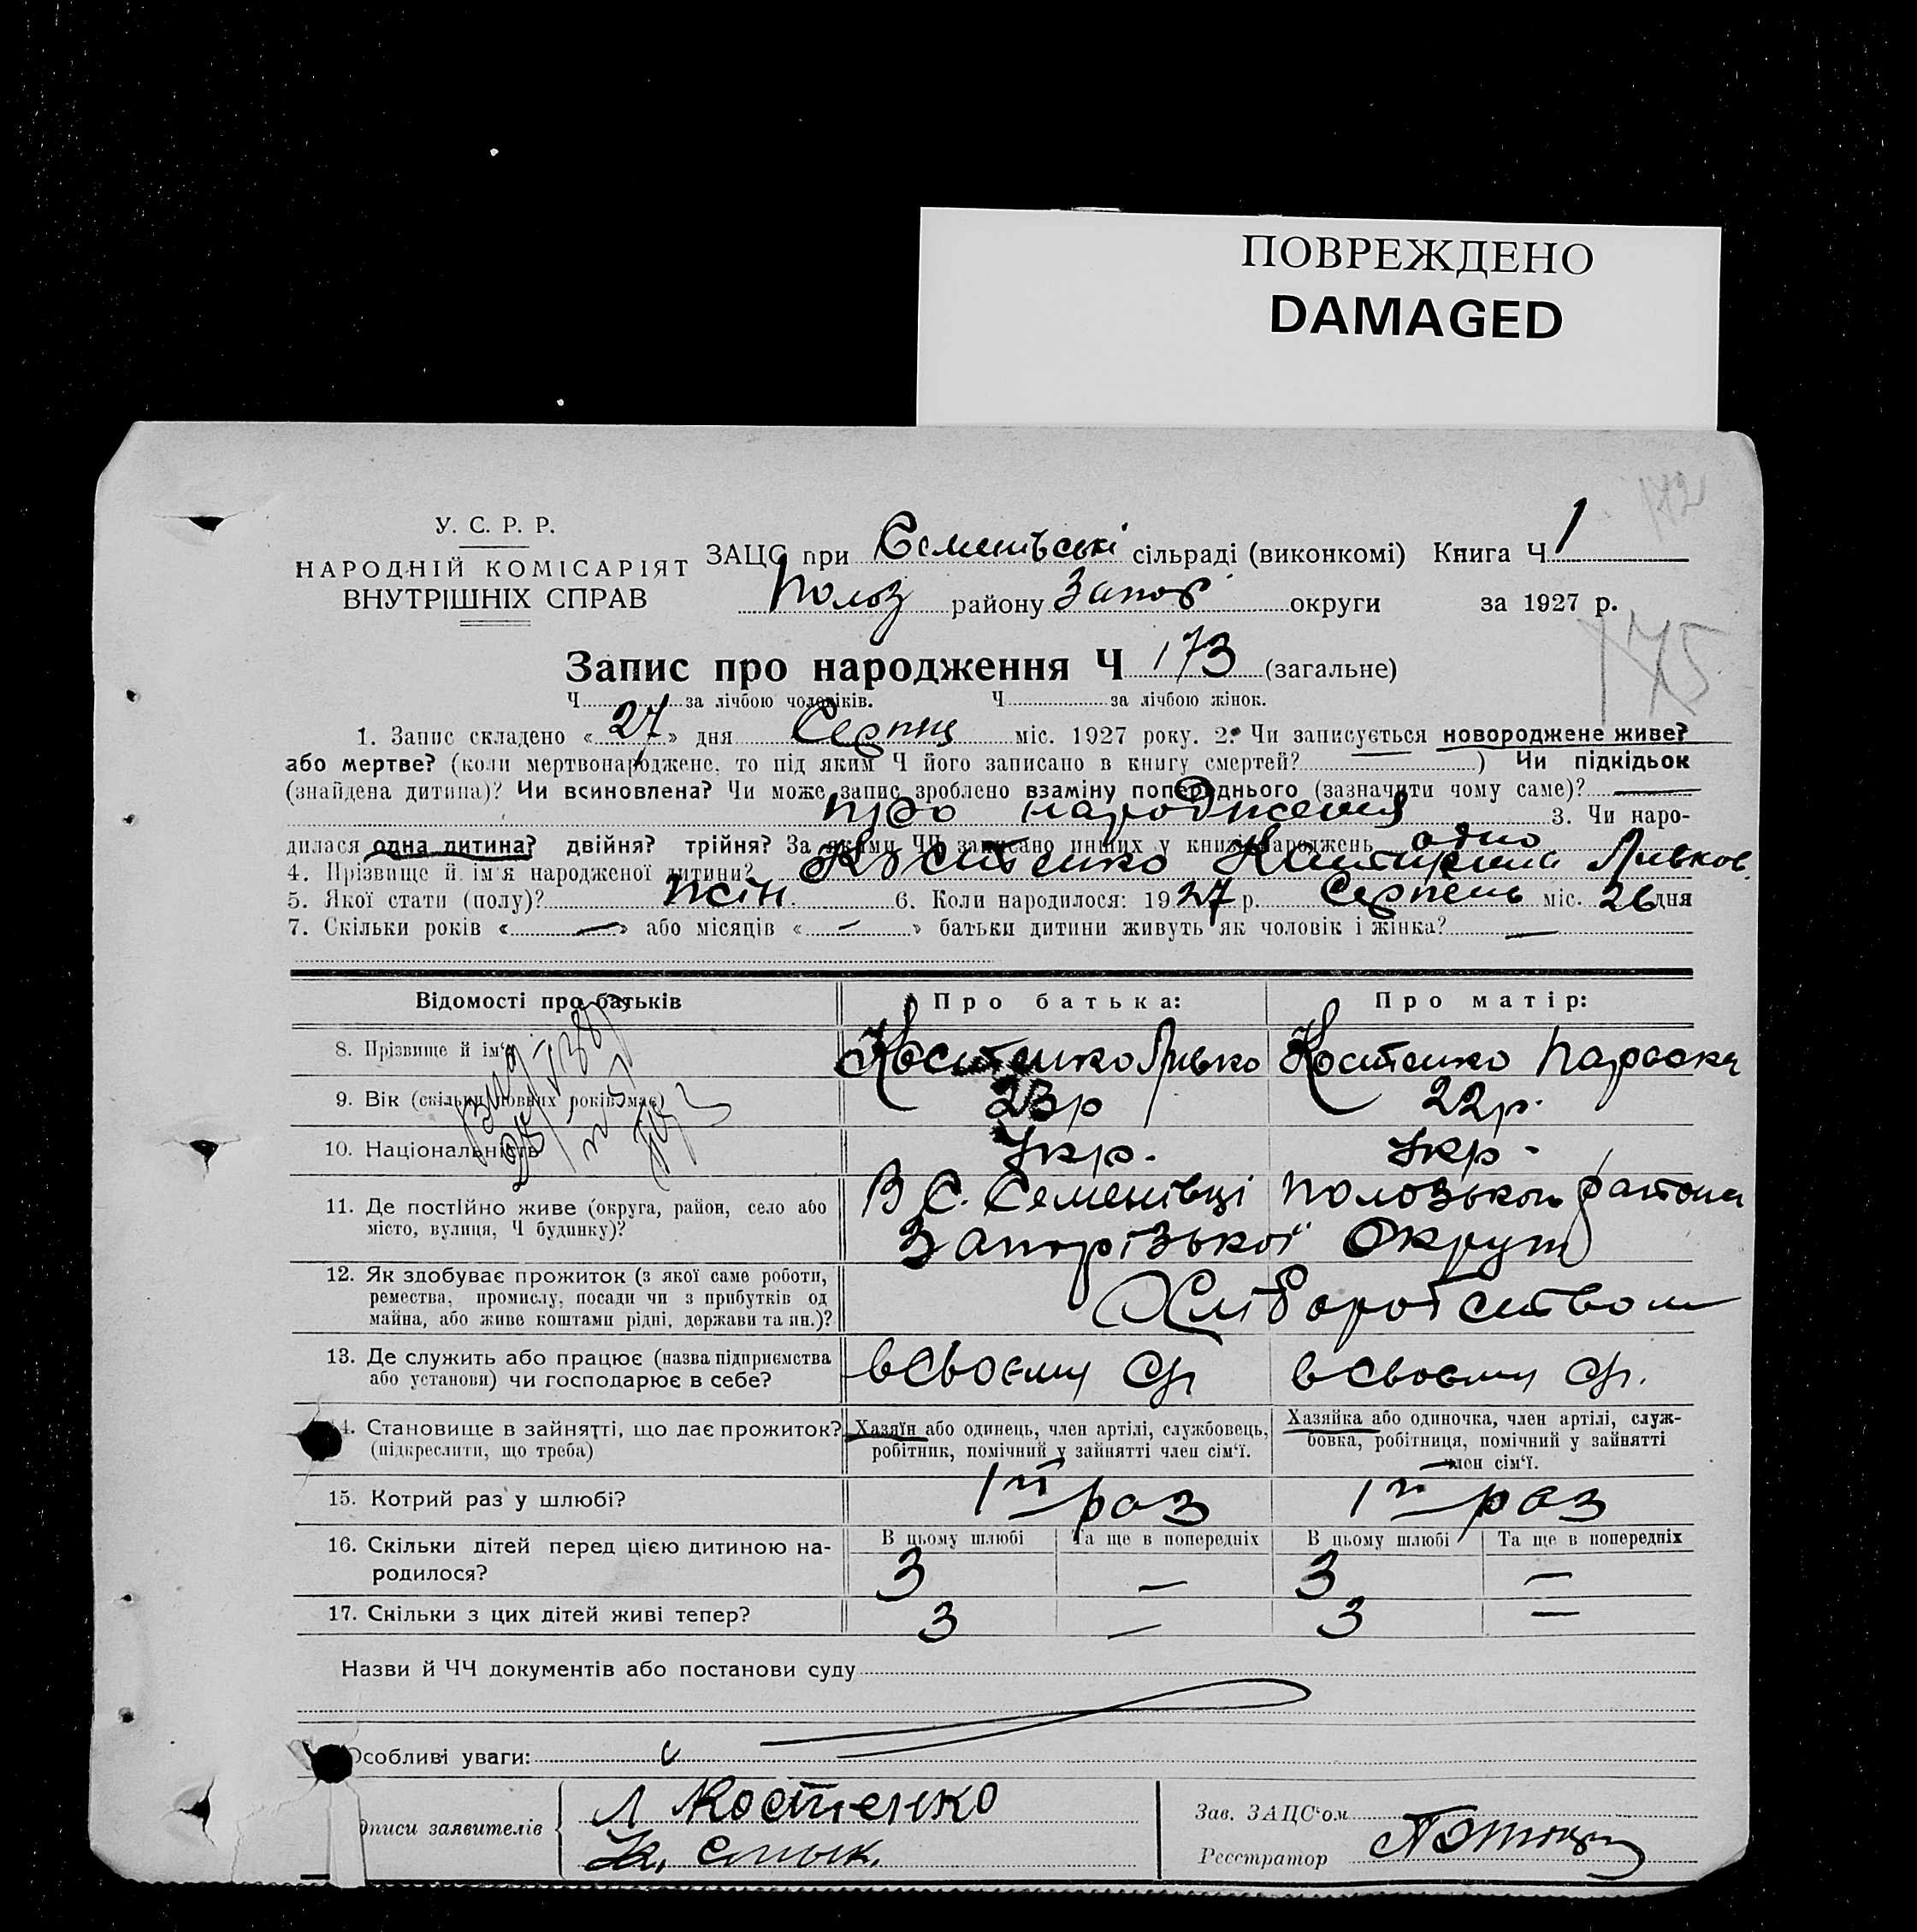 ПОВРЕЖДЕНО
DAMAGED
У. С. Р. Р.
НАРОДНІЙ КОМІСАРІЯТ
ВНУТРІШНІХ СПРАВ
ЗАЦС при Семенівські сільраді (виконкомі) Книга Ч 1
Полоз району Запор округи за 1927 р.
175
Запис про народження Ч 173 (загальне)
Ч за лічбою чоловіків. Ч за лічбою жінок.
1. Запис складено « 27 » дня Серпня міс. 1927 року. 2. Чи записується новороджене живе?
або мертве? (коли мертвонароджене, то під яким Ч його записано в книгу смертей? — ) Чи підкідьок
(знайдена дитина)? Чи всиновлена? Чи може запис зроблено взаміну попереднього (зазначити чому саме)? —
про народження 3. Чи наро-
дилася одна дитина? двійня? трійня? За якими ЧЧ записано инших у книзі народжень одно
4. Прізвище й ім'я народженої дитини? Костенко Левков.
5. Якої стати (полу)? жін. 6. Коли народилося: 1927 р. Серпень міс. 26 дня
7. Скільки років « — » або місяців « — » батьки дитини живуть як чоловік і жінка? —
Відомості про батьків Про батька: Про матір:
8. Прізвище й ім'я Костенко Левко Костенко Параска
9. Вік (скільки повних років має) 23 р 22 р.
10. Національність Укр. Укр -
11. Де постійно живе (округа, район, село або В С. Семенівці Полозького району
місто, вулиця, Ч будинку)? Запорізької Округи
12. Як здобуває прожиток (з якої саме роботи,
ремества, промислу, посади чи з прибутків од Хліборобством
майна, або живе коштами рідні, держави та ин.)?
13. Де служить або працює (назва підприємства в своєму в своєму
або установи) чи господарює в себе?
14. Становище в зайнятті, що дає прожиток? Хазяїн або одинець, член артілі, службовець, Хазяйка або одиночка, член артілі, служ-
(підкреслити, що треба) робітник, помічний у зайнятті член сім'ї. бовка, робітниця, помічний у зайнятті
член сім'ї.
15. Котрий раз у шлюбі? 1й раз 1й раз
16. Скільки дітей перед цією дитиною на- В цьому шлюбі Та ще в попередніх В цьому шлюбі Та ще в попередніх
родилося? 3 — 3 —
17. Скільки з цих дітей живі тепер? 3 — 3 —
Назви й ЧЧ документів або постанови суду
Особливі уваги:
дписи заявителів Л Костенко Зав. ЗАЦС'ом
К. Смык. Реєстратор